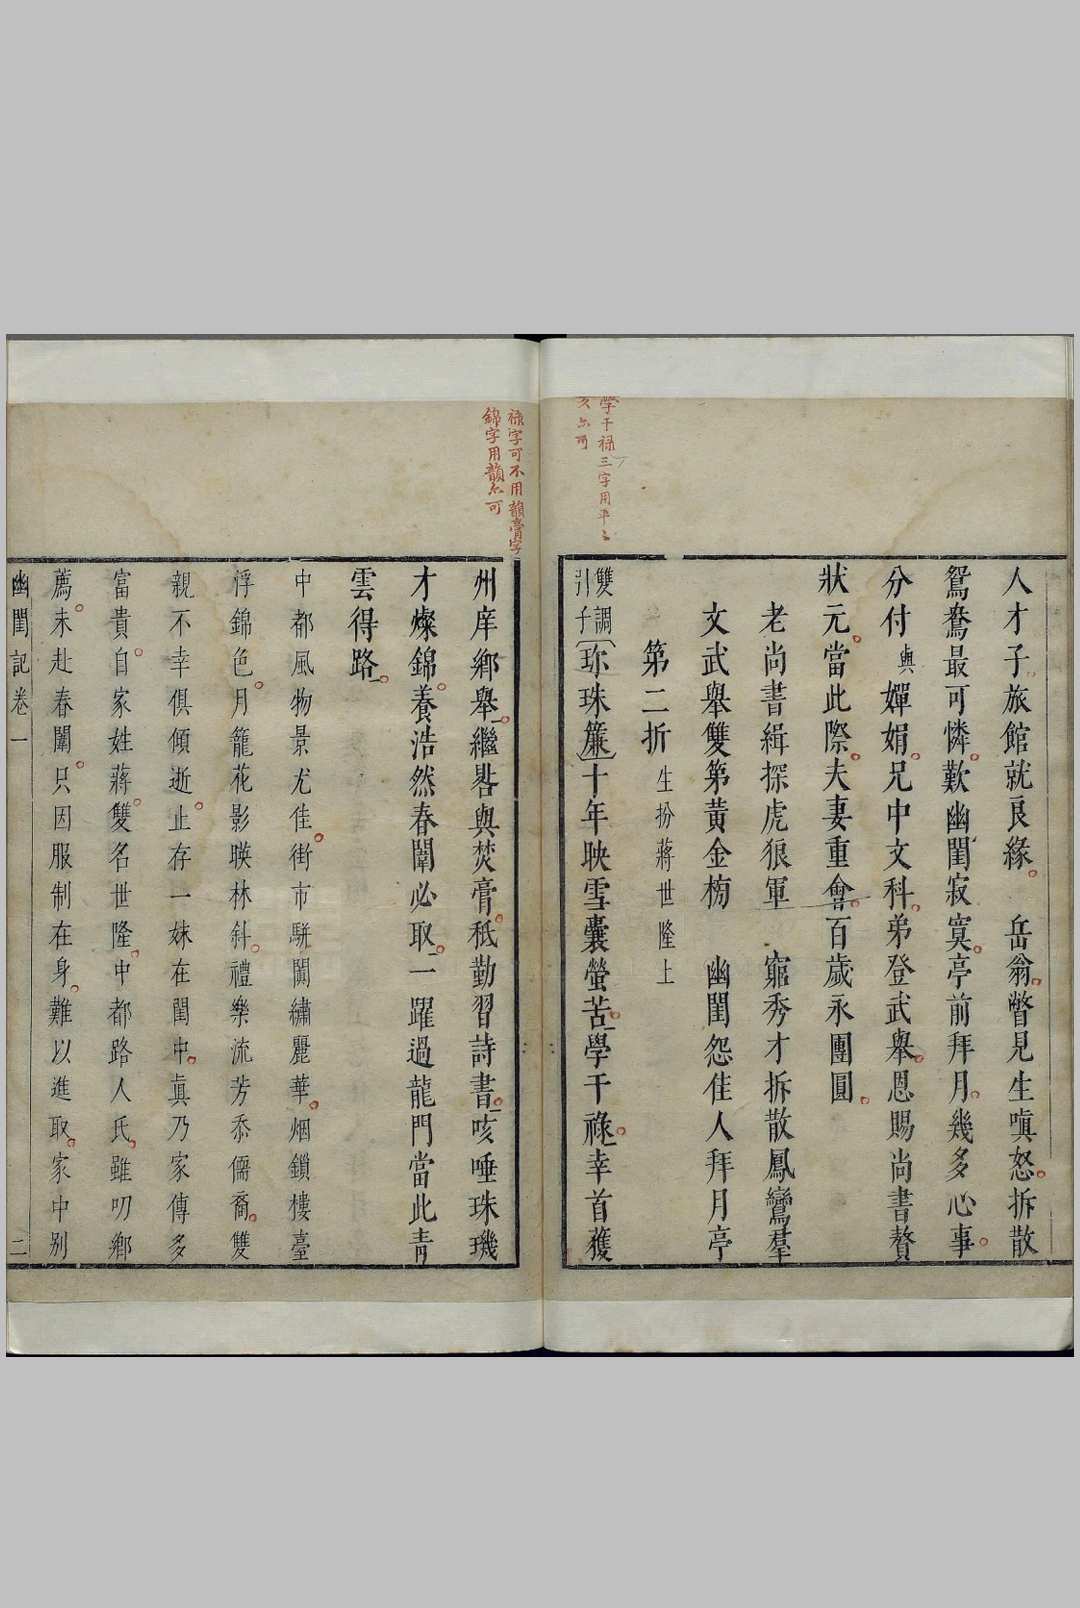 學干祿三字用平
人才子旅館就良緣　岳翁瞥見生嗔怒拆散
鴛鴦最可憐歎幽閨寂寞亭前拜月幾多心事
分付與嬋娟兄中文科弟登武舉恩賜尚書贅
狀元當此際夫妻重會百歲永團圓
老尚書緝探虎狼軍　窮秀才拆散鳳鸞羣
文武舉雙第黃金榜　幽閨怨佳人拜月亭
第二折生扮蔣世隆上
雙調引子珎珠簾十年映雪囊螢苦學干祿幸首獲
祿字可不用韻膏字
錦字用韻亦可
州庠鄉舉繼晷與焚膏秪勤習詩書咳唾珠璣
才燦錦養浩然春闈必取一躍過龍門當此青
雲得路
中都風物景尤佳街市駢闐繡麗華烟鎖樓臺
浮錦色月籠花影暎林斜禮樂流芳忝儒裔雙
親不幸俱傾逝止存一妹在閨中眞乃家傳多
富貴自家姓蔣雙名世隆中都路人氏雖叨鄉
薦未赴春闈只因服制在身難以進取家中别
幽閨記卷一　二